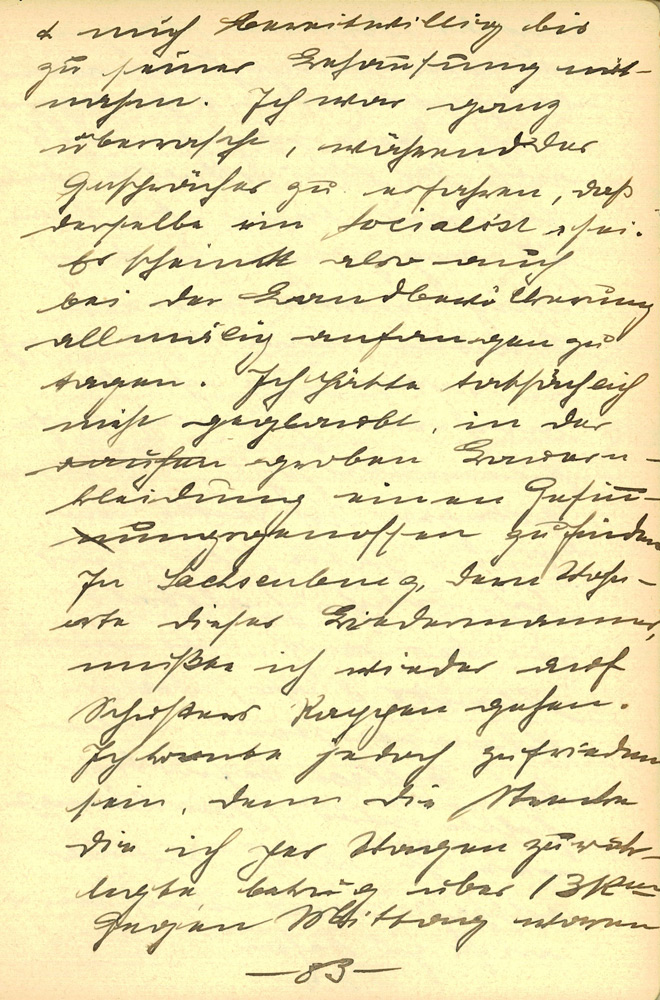 & mich bereitwillig bis
zu seiner Behausung mit-
nahm. Ich war ganz
überrascht, während des
Gespräches zu erfahren, daß
derselbe ein Socialist sei.
Es scheint also auch
bei der Landbevölkerung
allmälig anfangen zu
tagen. Ich hätte tatsächlich
nicht geglaubt, in der
groben Bauern-
kleidung einen Gesin-
nungsgenossen zu finden
In Sachsenburg, dem Wohn-
orte dieses Biedermannes,
mußte ich wieder auf
Schusters Rappen gehen.
Ich konnte jedoch zufrieden
sein, denn die Strecke
die ich per Wagen zurück-
legte betrug über 13 Km
Gegen Mittag waren
—83—